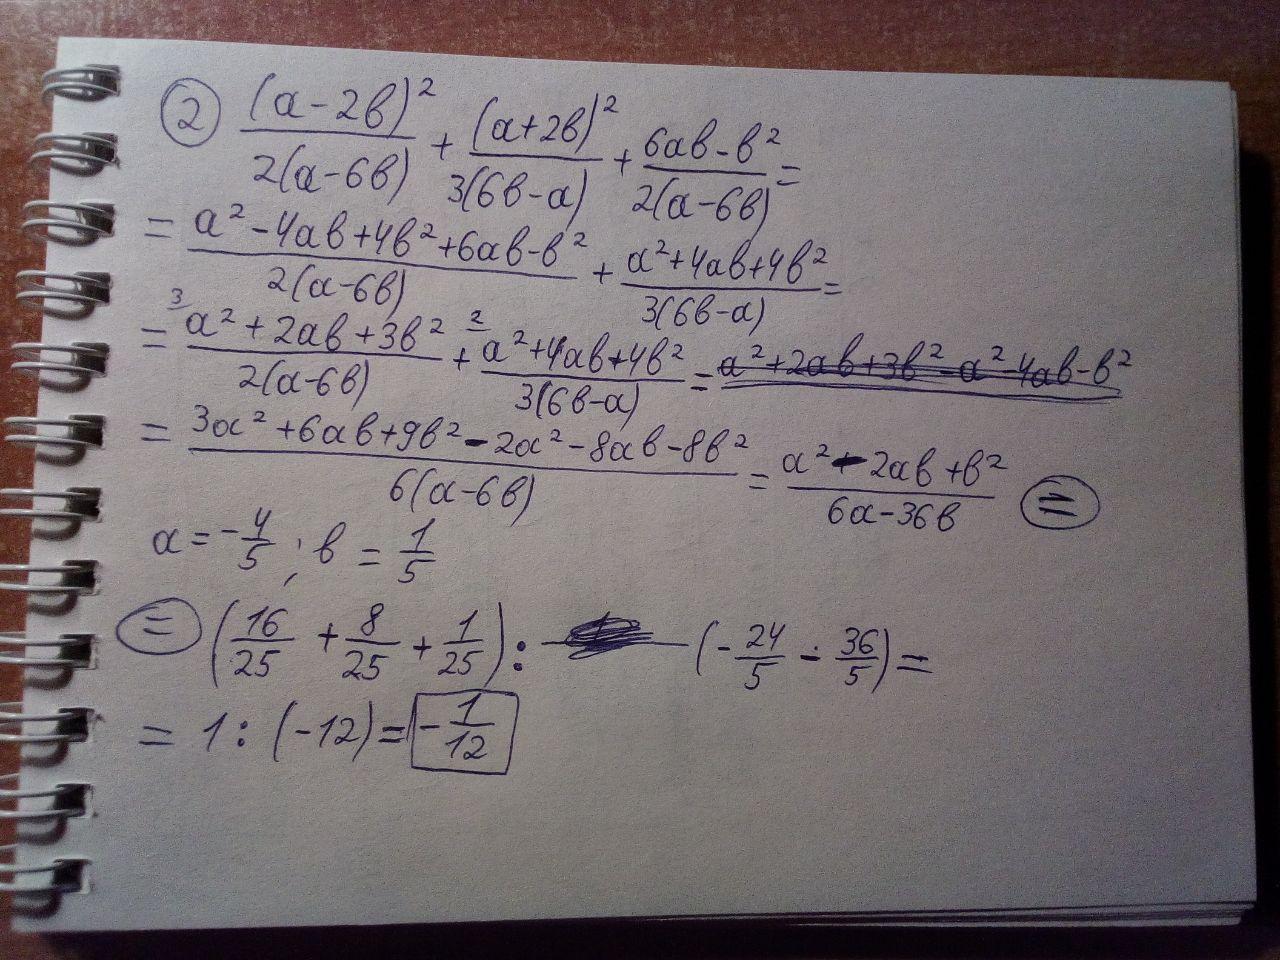 ② (a-2в)²/2(a-6в) + (a+2в)²/3(6в-a) + 6aв-в²/2(a-6в) =
= a²-4aв+4в²+6aв-в²/2(a-6в) + a²+4aв+4в²/3(6в-a) =
= ³⁾a²+2aв+3в²/2(a-6в) + ²⁾a²+4aв+4в²/3(6в-a) = a²+2aв+3в²-a²-4aв-в²
= 3a²+6aв+9в²-2a²-8aв-8в²/6(a-6в) = a²-2aв+в²/6a-36в (=)
a = -4/5 ; в = 1/5
(=) (16/25 + 8/25 + 1/25) : (-24/5 - 36/5) =
= 1 : (-12) = -1/12